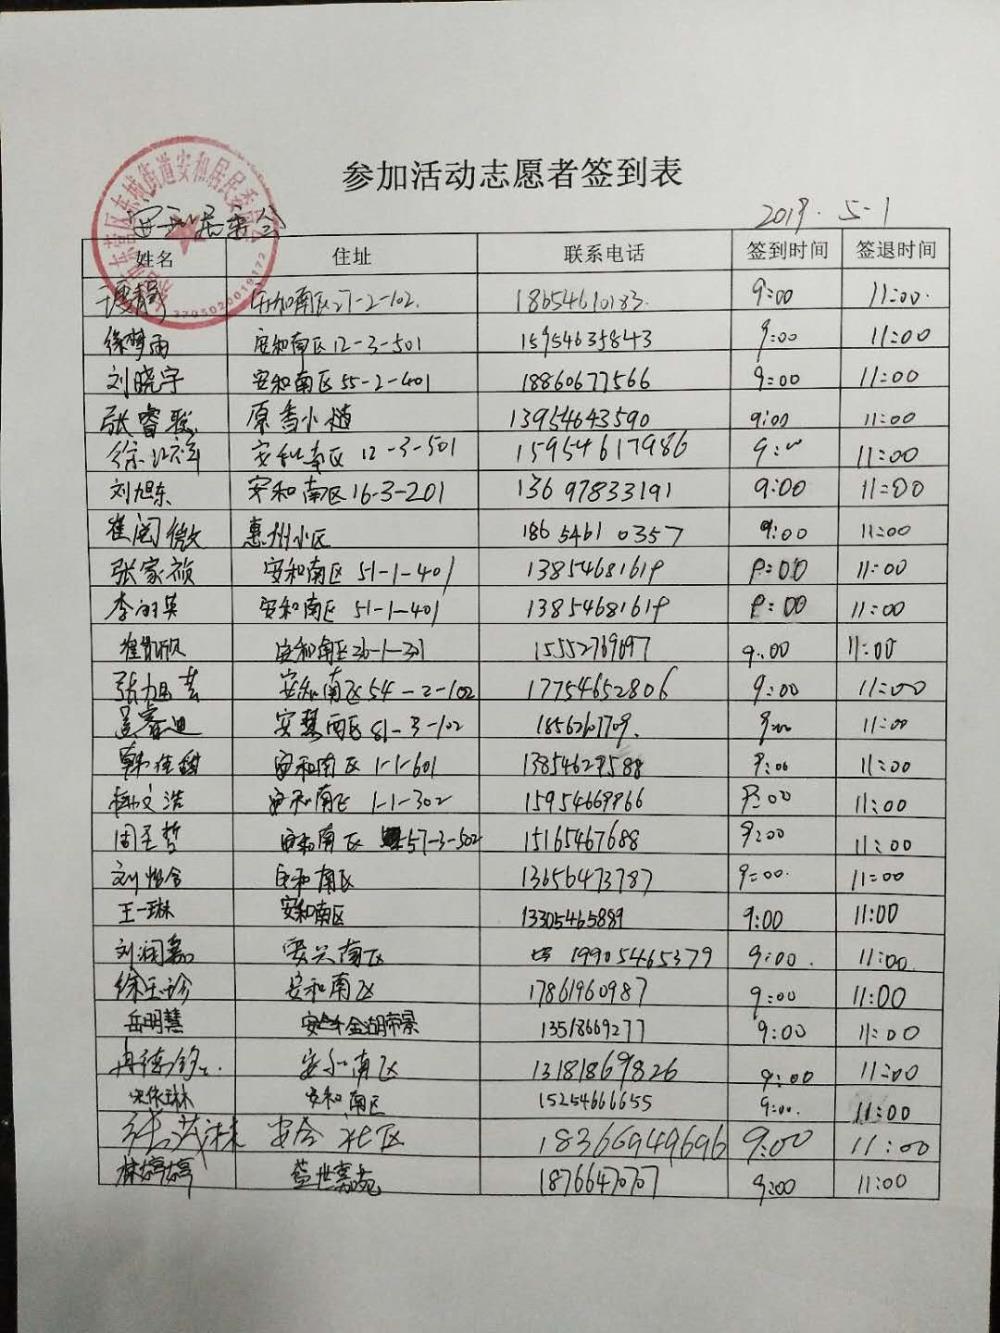 参加活动志愿者签到表
2019.5-1
姓名 住址 联系电话 签到时间 签退时间
南区27-2-102. 18654610183. 9:00 11:00.
徐梦雨 安和南区12-3-501 15954635843 9:00 11:00
刘晓宇 安和南区55-2-401 18860677566 9:00 11:00
张睿聪 原香小镇 13954643590 9:00 11:00
安和南区12-3-501 15954617986 11:00
刘旭东 安和南区16-3-201 13697833191 9:00 11:00
崔阅微 惠州小区 186 5461 0357 9:00 11:00
张家祯 安和南区 51-1-401 13854681619 9:00 11:00
安和南区 51-1-401 13854681619 9:00 11:00
安和南区 15552769697 9:00 11:00
安和南区54-2-102 17754652806 9:00 11:00
孟睿迪 安慧西区81-3-102 11:00
安和南区1-1-601 9:00 11:00
安和南区 1-1-302 9:00 11:00
周圣哲 安和南区 57-3-502 15165467688 9:00 11:00
刘 安和南区 13656473787 9:00. 11:00
王一琳 安和南区 13305465889 9:00 11:00
刘润嘉 安兴南区 19905465379 9:00. 11:00.
徐玉珍 安和南区 17861960987 9:00 11:00
岳明慧 金湖帝景 13518669277 9:00 11:00
安和南区 13181869826 9:00 11:00
宋依琳 安和南区 15254666655 9:00. 11:00
社区 18366949696 9:00 11:00
林婷婷 盛世嘉苑 18766470707 9:00 11:00